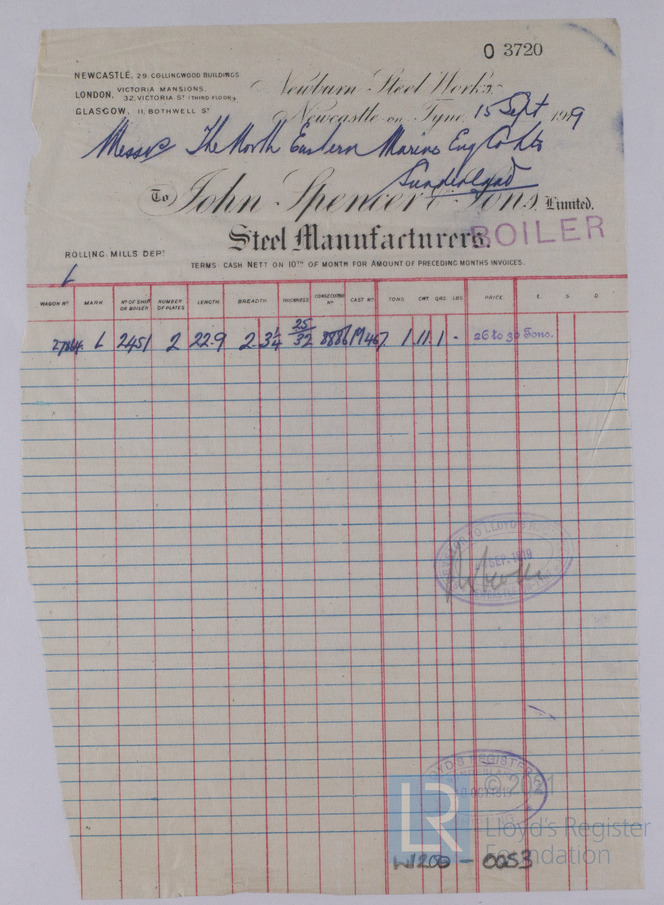 O 3720
NEWCASTLE, 29 COLLINGWOOD BUILDINGS
LONDON, VICTORIA MANSIONS, 32, VICTORIA ST (THIRD FLOOR),
GLASGOW, 11, BOTHWELL ST
Newburn Steel Works,
Newcastle on Tyne, 15 Sept 1919
Messrs The North Eastern Marine Eng Co Ltd
Sunderland
To John Spencer & Sons, Limited.
Steel Manufacturers.
BOILER
ROLLING MILLS DEPT
L
TERMS: CASH NETT ON 10TH OF MONTH FOR AMOUNT OF PRECEDING MONTHS INVOICES.
WAGON No MARK No OF SHIP OR BOILER NUMBER OF PLATES LENGTH BREADTH THICKNESS CONSECUTIVE No CAST No TONS CWT QRS LBS PRICE £ S D
L 2451 2 22.9 2.3¼ 25/32 1 11 1 - 26 to 30 Tons.
LLOYD'S
SEP. 1919
LLOYD'S REGISTER
© 2021
LR Lloyd's Register
Foundation
W1200 - 0053